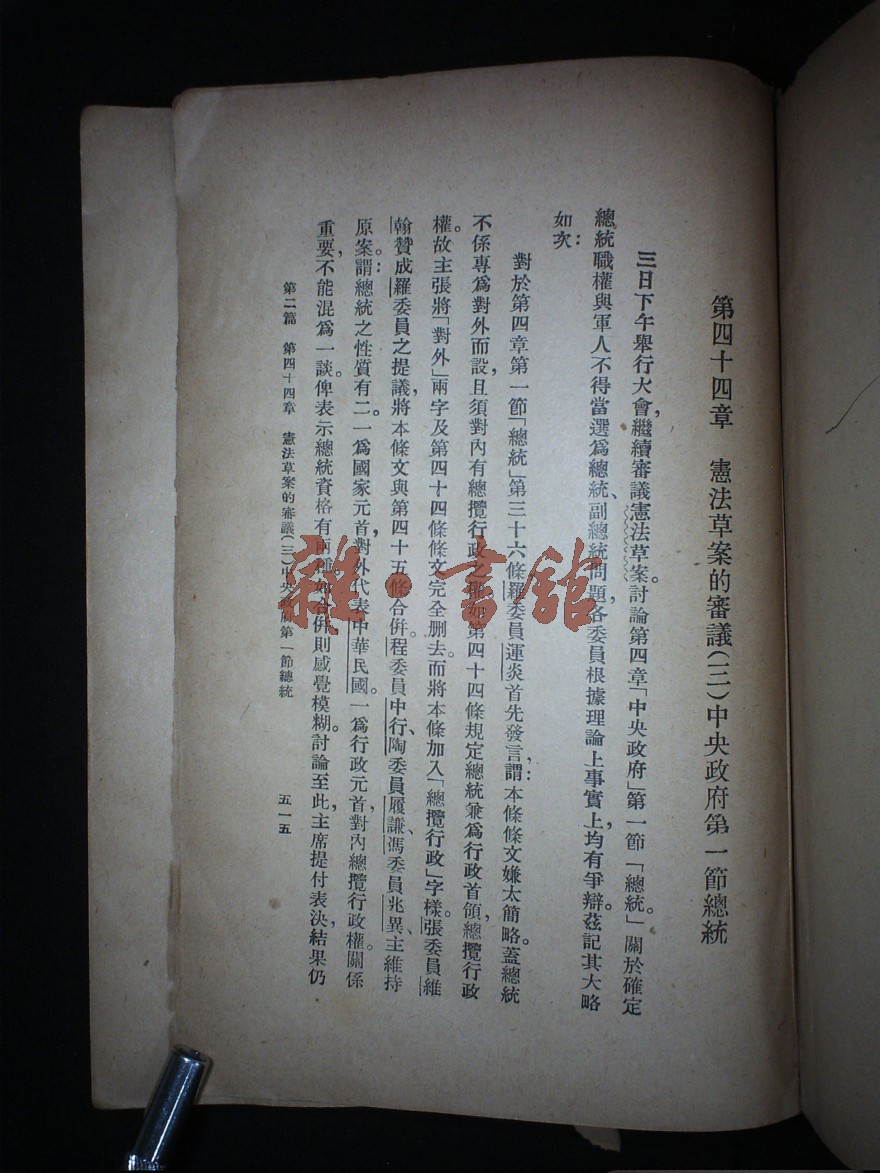 第四十四章　憲法草案的審議(三)中央政府第一節總統
三日下午舉行大會，繼續審議憲法草案。討論第四章「中央政府」第一節「總統」。關於確定
總統職權與軍人不得當選爲總統、副總統問題，各委員根據理論上事實上均有爭辯。茲記其大略
如次：
對於第四章第一節「總統」第三十六條，羅委員運炎首先發言，謂：本條條文嫌太簡略。蓋總統
不係專爲對外而設，且須對內有總攬行政之權。如第四十四條規定總統兼爲行政首領，總攬行政
權。故主張將「對外」兩字及第四十四條條文完全删去，而將本條加入「總攬行政」字樣。張委員維
翰贊成羅委員之提議，將本條文與第四十五條合併。程委員中行、陶委員履謙、馮委員兆異、主維持
原案。謂：總統之性質有二。一爲國家元首，對外代表中華民國。一爲行政元首，對內總攬行政權。關係
重要，不能混爲一談。俾表示總統資格有兩種，如合併則感覺模糊。討論至此，主席提付表決，結果仍
第二篇　第四十四章　憲法草案的審議(三)中央政府第一節總統　五一五
雜·書舘